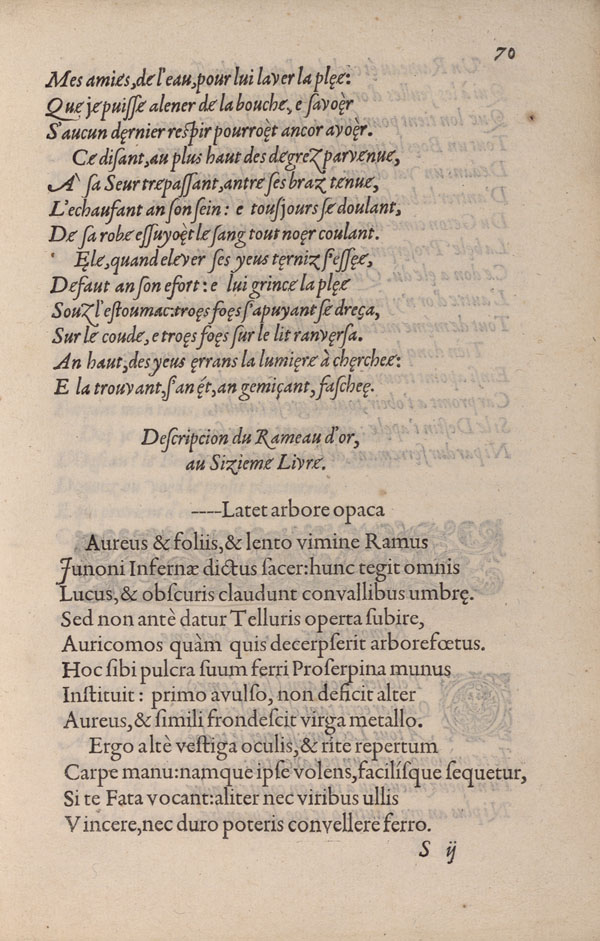 70
Mes amiés, de l'eau, pour lui laver la plęe:
Quę je puiſſe alener de la bouche, e ſavoęr
S'aucun dęrnier reſpir pourroęt ancor avoęr.
Ce diſant, au plus haut des degreZ parvenue,
A ſa Seur trepaſſant, antre ſes braZ tenue,
L'echaufant an ſon ſein: e touſjours ſe doulant,
De ſa robe eſſuyoęt le ſang tout noęr coulant.
Ęle, quand elever ſes yeus tęrniZ ſ'eſſęe,
Defaut an ſon efort: e lui grince la plęe
SouZ l'eſtoumac: troęs foęs ſ'apuyant ſe dreça,
Sur le coude, e troęs foęs ſur le lit ranvęrſa.
An haut, des yeus ęrrans la lumięre à chęrchee:
E la trouvant, ſ'an ęt, an gemiçant, faſcheę.
Deſcripcion du Rameau d'or,
au Sizieme Livre.
----Latet arbore opaca
Aureus & foliis, & lento vimine Ramus
Junoni Infernæ dictus ſacer: hunc tegit omnis
Lucus, & obſcuris claudunt convallibus umbrę.
Sed non antè datur Telluris operta ſubire,
Auricomos quàm quis decerpſerit arbore fœtus.
Hoc ſibi pulcra ſuum ferri Proſerpina munus
Inſtituit: primo avulſo, non deficit alter
Aureus, & ſimili frondeſcit virga metallo.
Ergo altè veſtiga oculis, & rite repertum
Carpe manu: namque ipſe volens, facilíſque ſequetur,
Si te Fata vocant: aliter nec viribus ullis
Vincere, nec duro poteris convellere ferro.
S ij